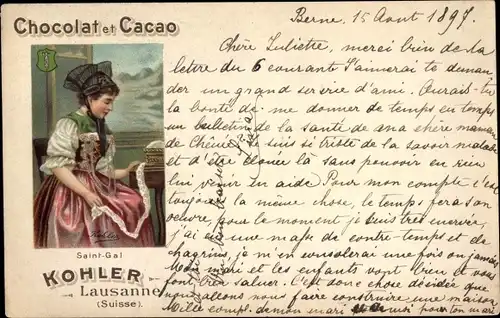 Chocolat et Cacao
Saint-Gal
KOHLER
Lausanne
(Suisse).
Berne. 15 Aout 1897.
Chère Juliette, merci bien de la
lettre du 6 courant J'aimerai te deman
der un grand service d'ami. Aurais-tu
la bonté de me donner de temps en temps
un bulletin de la santé de ma chère maman
de Je suis si triste de la savoir malade
et d'être là sans pouvoir en rien
lui venir en aide Pour mon compte c'est
toujours la même chose, le temps fera son
oeuvre, pour le moment je suis très énervée,
j'ai eu une masse de contre-temps et de
chagrins, je m'en consolerai une fois ou jamais
Mon mari et les enfants vont bien et vous
font bien saluer. C'est donc chose décidée que
nous allons nous faire construire une maison.
Mille compl. de mon mari pour ton mari